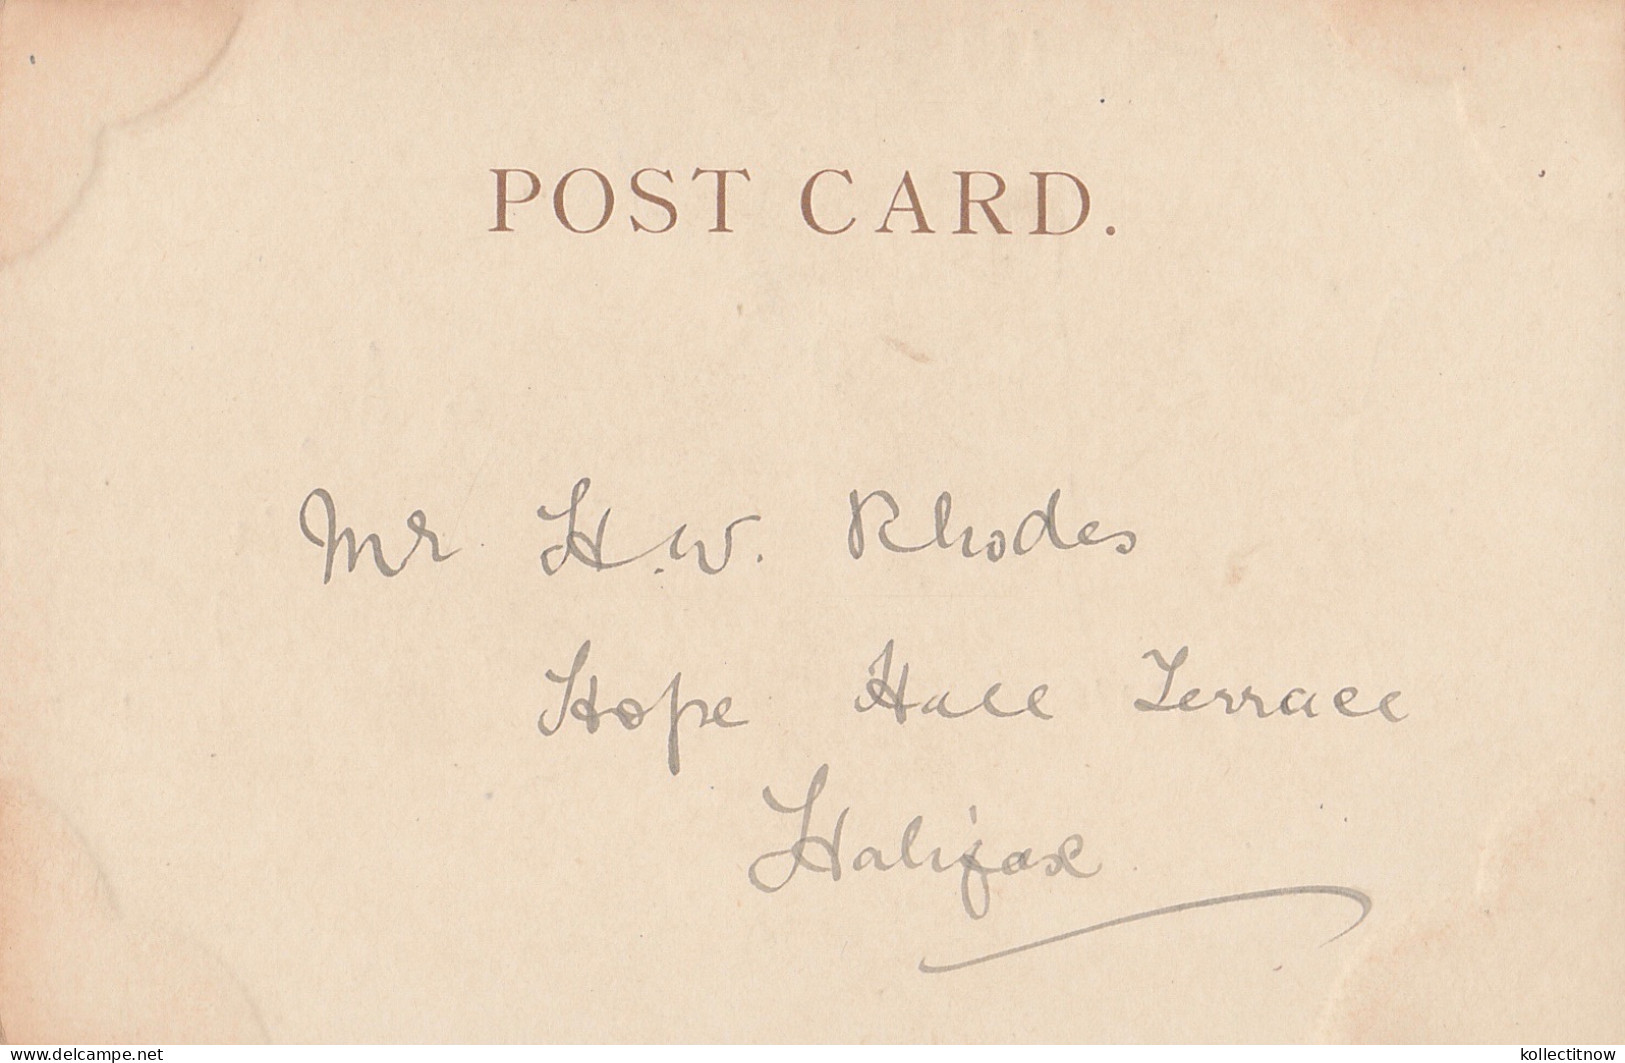 POST CARD.
Mr H.W. Rhodes
Hope Hall Terrace
Halifax
www.delcampe.net
kollectitnow